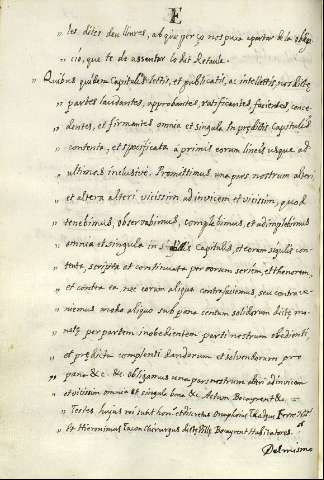 E
" les dites deu lliures, ab que per ço nos puxa apartar de la obliga
" ció, que te de assentar lo dit Retaule.
" Quibus quidem Capitulis lectis, et publicatis, ac intellectis nos dictę
" partes laudantes, approbantes, ratificantes, facientes, conce-
" dentes, et firmantes omnia et singula In prędictis Capitulis
" contenta, et specificata a primis eorum lineis usque ad
" ultimas inclusive. Promittimus una pars nostrum alteri,
" et altera alteri vicissim ad invicem et vicissim, quod
" tenebimus, observabimus, complebimus, et adimplebimus
" omnia et singula in s Capitulis, et eorum sigulis con-
" tenta, scripta et continuata per eorum seriem, et thenorem,
" et contra ea nec eorum aliqua contrafaciemus, seu contrave-
" niemus modo aliquo sub pena centum solidorum dictę mo-
" netę per partem inobedientem parti nostrum obedienti,
" et prędicta complenti dandorum et solvendorum pro
" pana &c. &c. obligamus una pars nostrum alteri ad invicem
" et vicissim omnia et singula bona &c Actum Bocayrent &c.
" Testes hujus rei sunt hon. et discretus Onuphrius Not.
" et Hieronimus Chirurgus dictę Villę Bocayrent Habitatores.
Del mismo